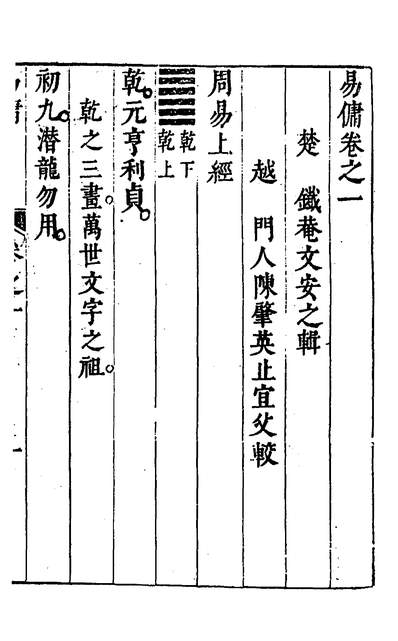 易傭卷之一
楚 鐵菴文安之輯
越 門人陳肇英止宜父較
周易上經
䷀
乾下
乾上
乾。元亨利貞。
乾之三畫。萬世文字之祖。
初九。潛龍勿用。